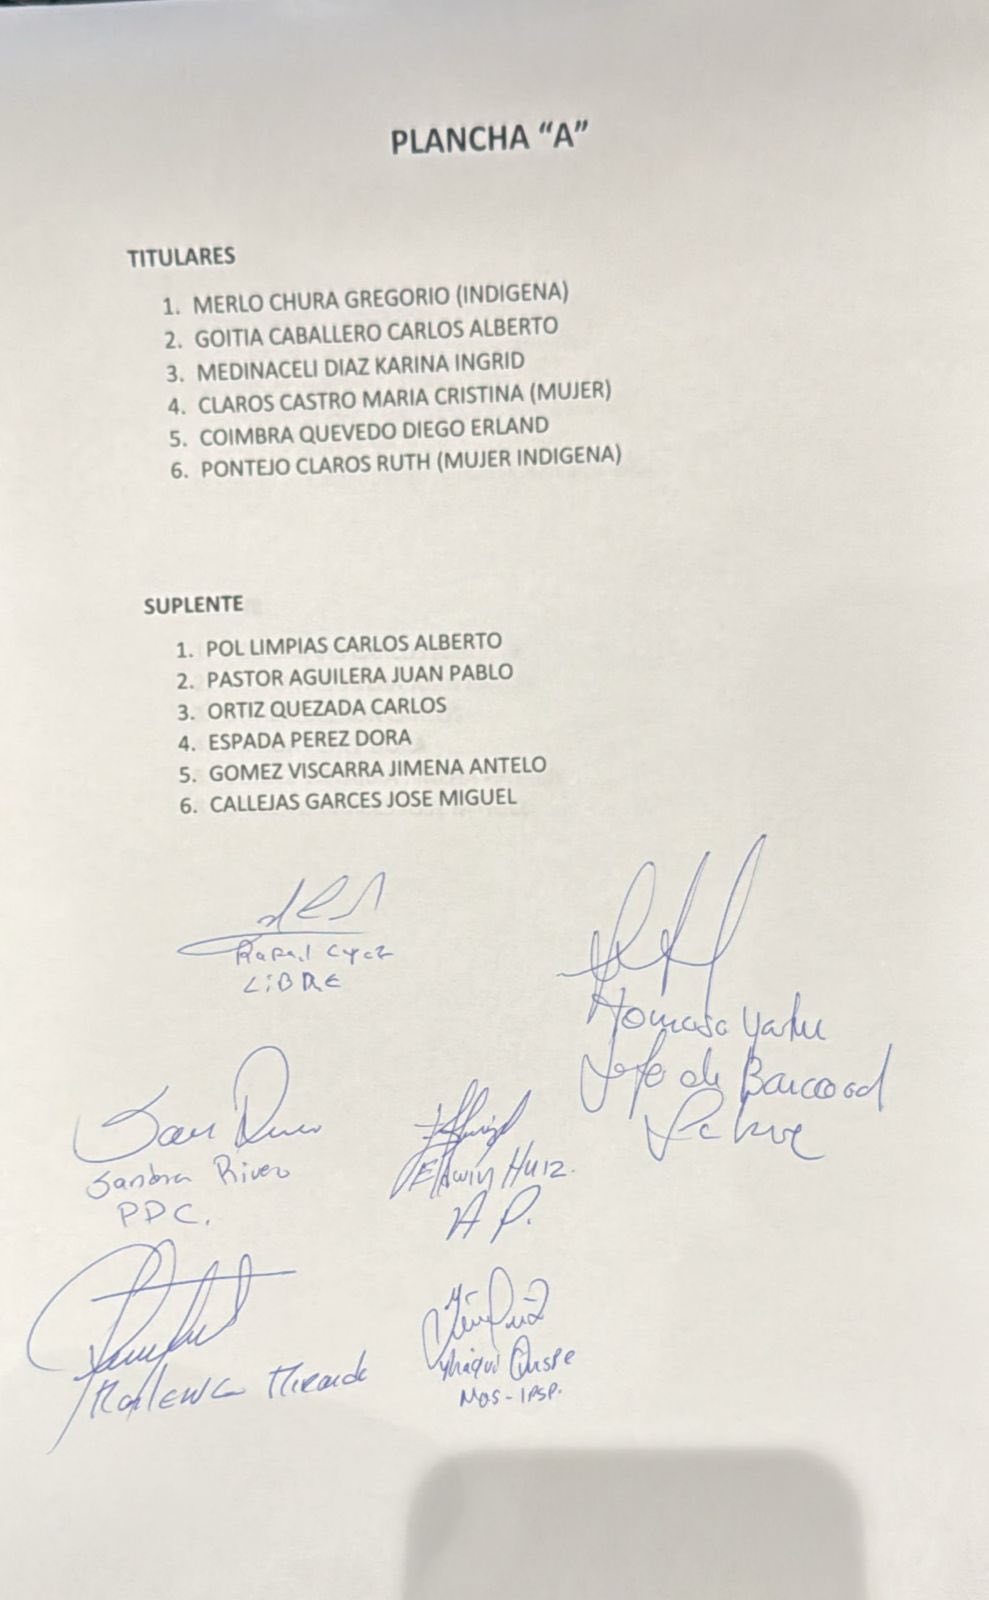 PLANCHA “A”
TITULARES
1. MERLO CHURA GREGORIO (INDIGENA)
2. GOITIA CABALLERO CARLOS ALBERTO
3. MEDINACELI DIAZ KARINA INGRID
4. CLAROS CASTRO MARIA CRISTINA (MUJER)
5. COIMBRA QUEVEDO DIEGO ERLAND
6. PONTEJO CLAROS RUTH (MUJER INDIGENA)
SUPLENTE
1. POL LIMPIAS CARLOS ALBERTO
2. PASTOR AGUILERA JUAN PABLO
3. ORTIZ QUEZADA CARLOS
4. ESPADA PEREZ DORA
5. GOMEZ VISCARRA JIMENA ANTELO
6. CALLEJAS GARCES JOSE MIGUEL
LIBRE
Jefe de
Sandra Rivero
PDC.
Edwin
A P.
Miranda
Quispe
MAS-IPSP.